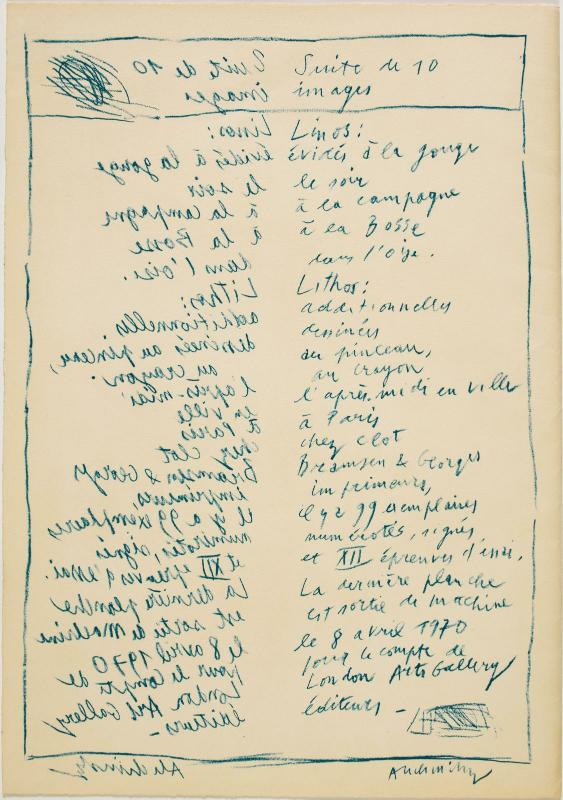 Suite de 10
images
Linos:
évidés à la gouge
le soir
à la campagne
à la Bosse
dans l'oise.
Lithos:
additionnelles
dessinées
au pinceau,
au crayon
l'après-midi en ville
à Paris
chez Clot
Bramsen & Georges
imprimeurs,
il y a 99 exemplaires
numérotés, signés
et XII épreuves d'essai.
La dernière planche
est sortie de machine
le 8 avril 1970
pour le compte de
London Arts Gallery
éditeurs -
Alechinsky
Suite de 10
images
Linos:
évidés à la gouge
le soir
à la campagne
à la Bosse
dans l'oise.
Lithos:
additionnelles
dessinées au pinceau,
au crayon
l'après-midi
en ville
à Paris
chez Clot
Bramsen & Georges
imprimeurs
il y a 99 exemplaires
numérotés, signés
et XII épreuves d'essai.
La dernière planche
est sortie de machine
le 8 avril 1970
pour le compte de
London Arts Gallery
éditeurs -
Alechinsky